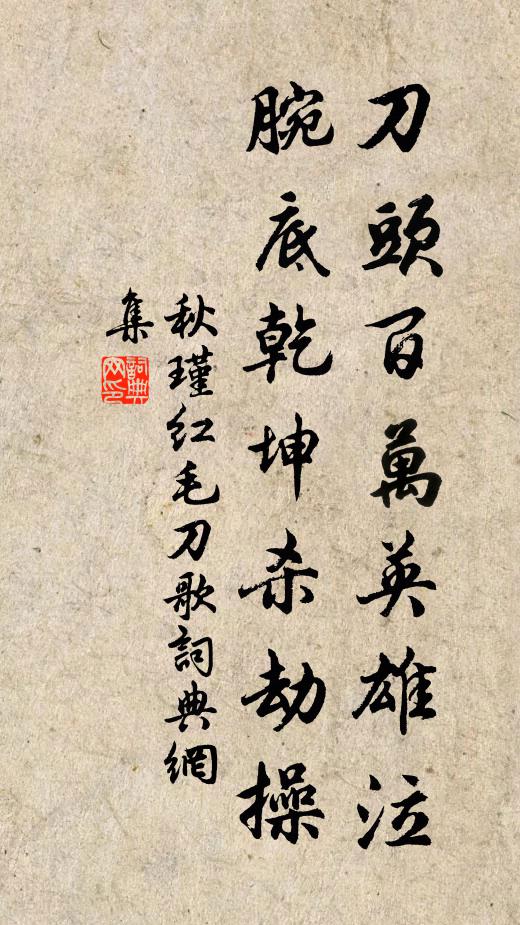 刀頭百萬英雄泣
腕底乾坤杀劫操
秋瑾红毛刀歌詞典網
集
詞典
网印